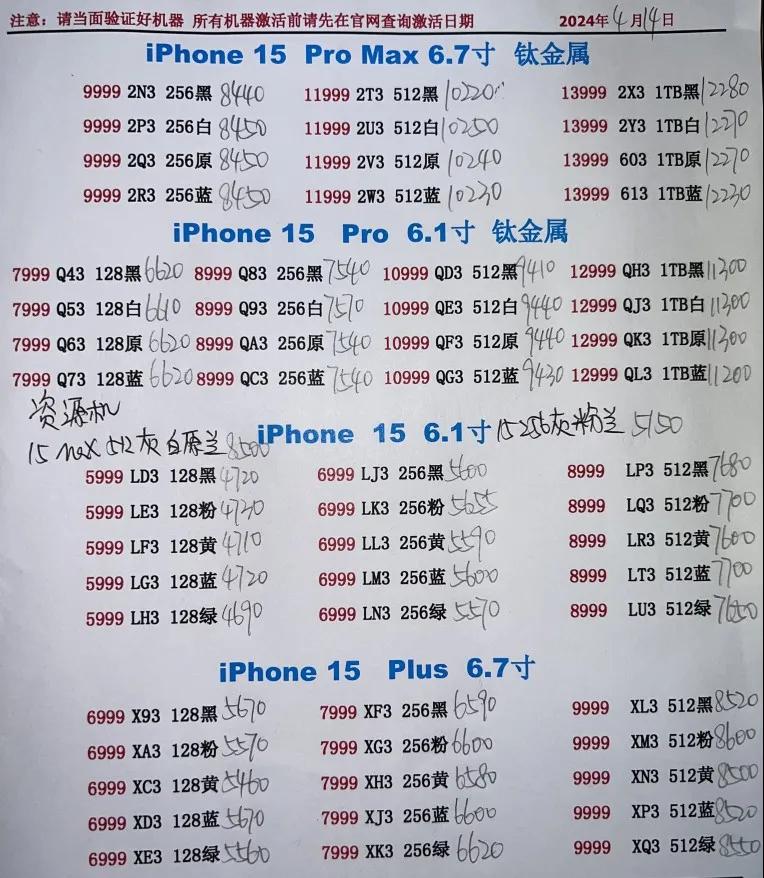 注意：请当面验证好机器 所有机器激活前请先在官网查询激活日期 2024年4月14日
iPhone 15 Pro Max 6.7寸 钛金属
9999 2N3 256黑 8440 11999 2T3 512黑 10220 13999 2X3 1TB黑 12280
9999 2P3 256白 8450 11999 2U3 512白 10250 13999 2Y3 1TB白 12270
9999 2Q3 256原 8450 11999 2V3 512原 10240 13999 603 1TB原 12270
9999 2R3 256蓝 8450 11999 2W3 512蓝 10230 13999 613 1TB蓝 12230
iPhone 15 Pro 6.1寸 钛金属
7999 Q43 128黑 6620 8999 Q83 256黑 7540 10999 QD3 512黑 9410 12999 QH3 1TB黑 11300
7999 Q53 128白 6610 8999 Q93 256白 7570 10999 QE3 512白 9440 12999 QJ3 1TB白 11300
7999 Q63 128原 6620 8999 QA3 256原 7540 10999 QF3 512原 9440 12999 QK3 1TB原 11300
7999 Q73 128蓝 6620 8999 QC3 256蓝 7540 10999 QG3 512蓝 9430 12999 QL3 1TB蓝 11200
资源机
15 max 512灰白原兰 8500 iPhone 15 6.1寸 15 256灰粉兰 5150
5999 LD3 128黑 4720 6999 LJ3 256黑 5600 8999 LP3 512黑 7680
5999 LE3 128粉 4730 6999 LK3 256粉 5655 8999 LQ3 512粉 7700
5999 LF3 128黄 4710 6999 LL3 256黄 5590 8999 LR3 512黄 7600
5999 LG3 128蓝 4720 6999 LM3 256蓝 5600 8999 LT3 512蓝 7700
5999 LH3 128绿 4690 6999 LN3 256绿 5570 8999 LU3 512绿 7650
iPhone 15 Plus 6.7寸
6999 X93 128黑 5670 7999 XF3 256黑 6590 9999 XL3 512黑 8520
6999 XA3 128粉 5570 7999 XG3 256粉 6600 9999 XM3 512粉 8600
6999 XC3 128黄 5460 7999 XH3 256黄 6580 9999 XN3 512黄 8500
6999 XD3 128蓝 5670 7999 XJ3 256蓝 6600 9999 XP3 512蓝 8520
6999 XE3 128绿 5560 7999 XK3 256绿 6620 9999 XQ3 512绿 8550